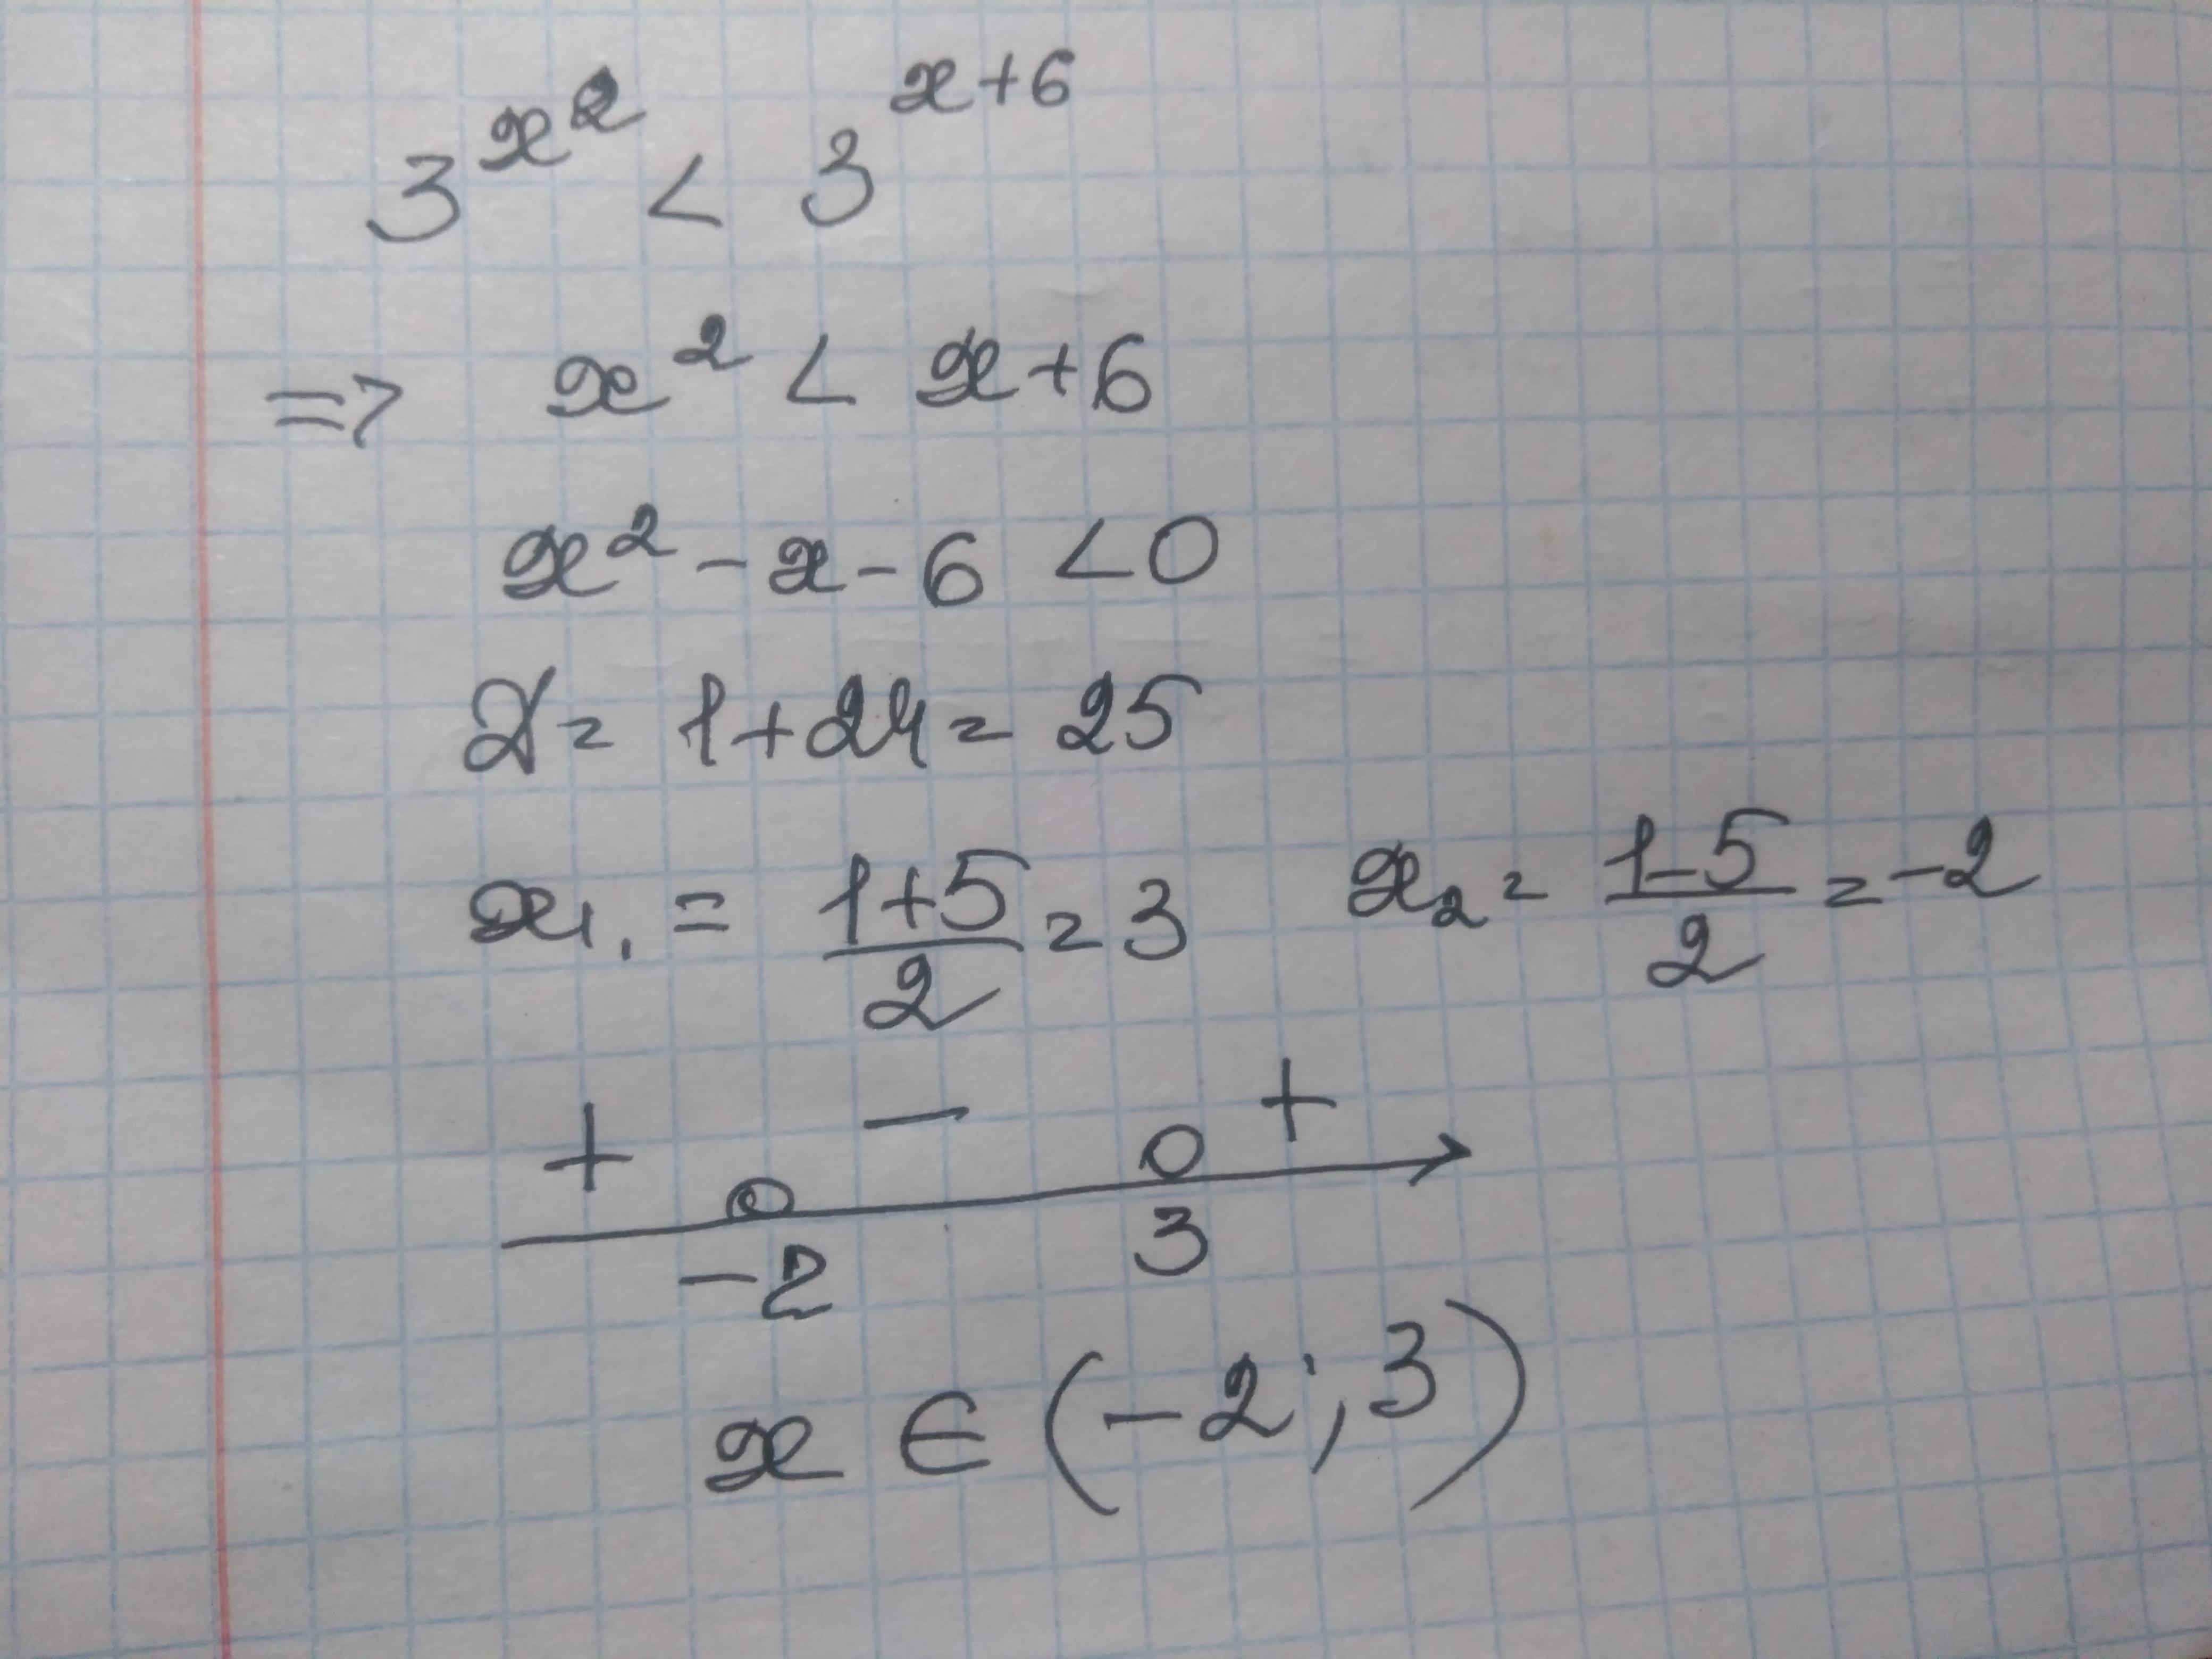 3^{x^2} < 3^{x+6}
=> x^2 < x+6
x^2 - x - 6 < 0
D = 1+24 = 25
x_1 = \frac{1+5}{2} = 3 x_2 = \frac{1-5}{2} = -2
+ - +
-2 3
x ∈ (-2; 3)